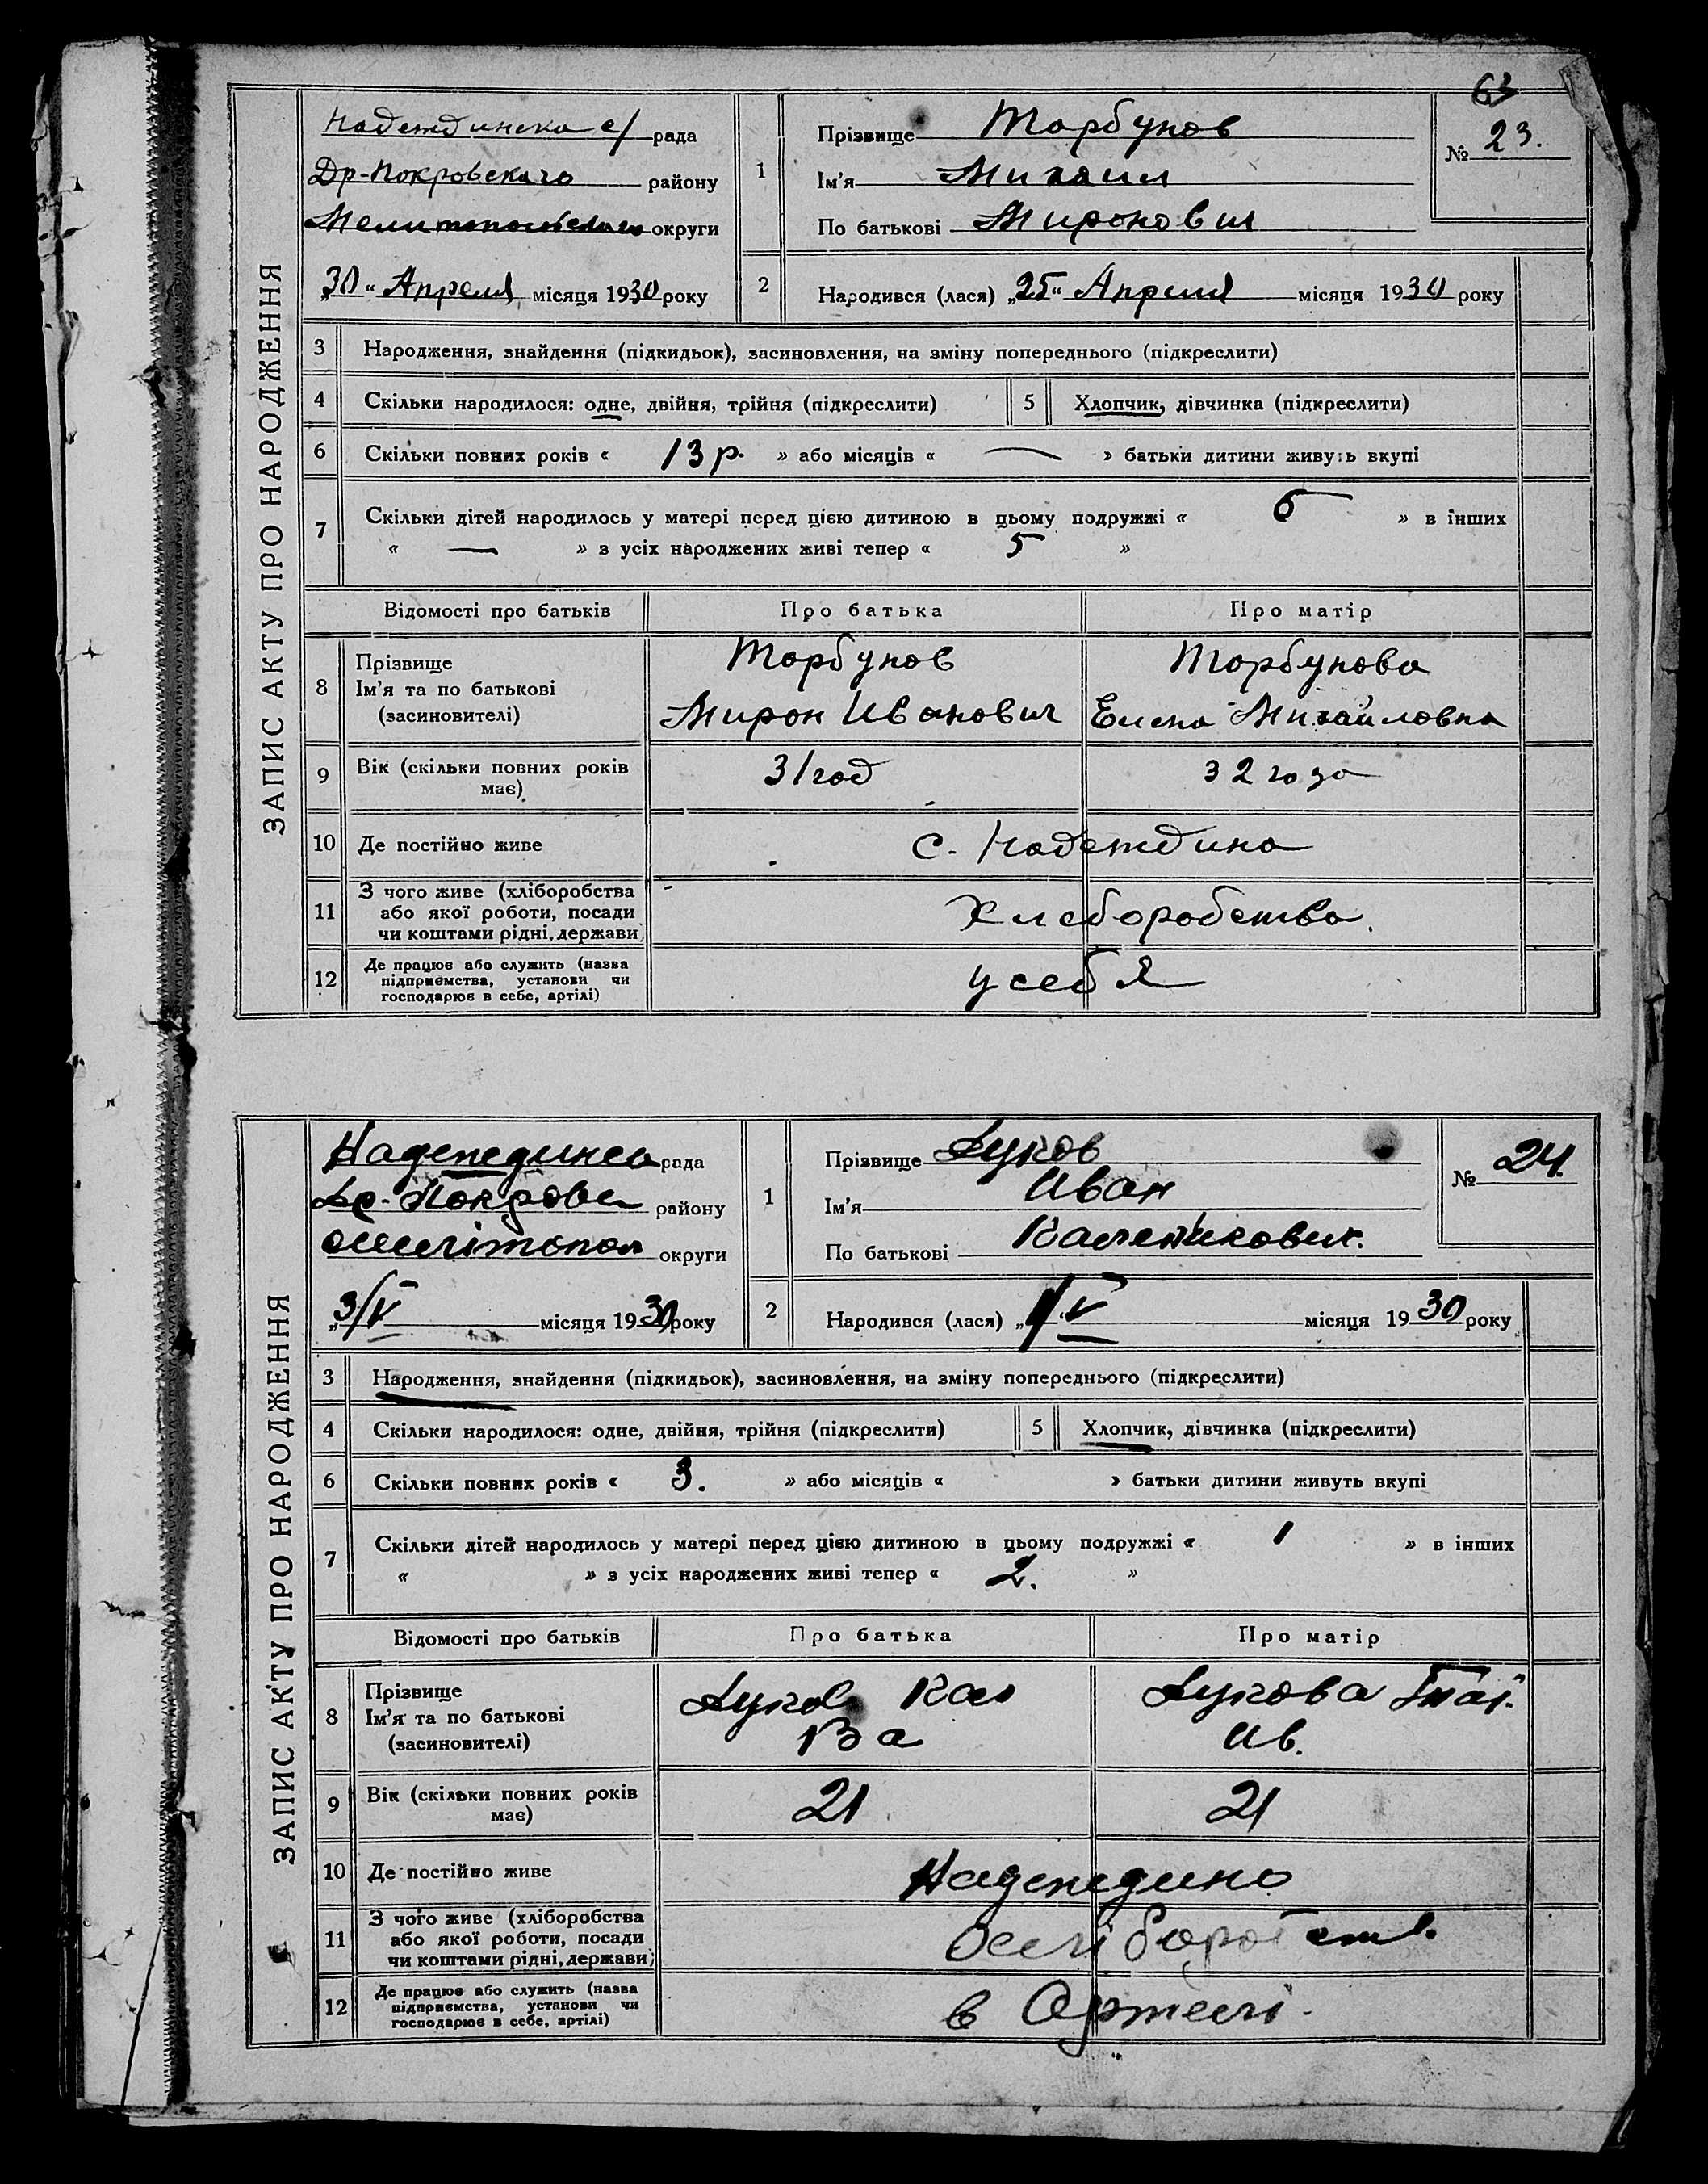 63
ЗАПИС АКТУ ПРО НАРОДЖЕННЯ
Надеждинска с/ рада
Др-Покровского району
Мелитопольского округи
„30“ Апреля місяця 1930 року
1
Прізвище Торбунов
Ім'я Михаил
По батькові Миронович
№ 23.
2
Народився (лася) „25“ Апреля місяця 1930 року
3 Народження, знайдення (підкидьок), засиновлення, на зміну попереднього (підкреслити)
4 Скільки народилося: одне, двійня, трійня (підкреслити) 5 Хлопчик, дівчинка (підкреслити)
6 Скільки повних років « 13 р. » або місяців « — » батьки дитини живуть вкупі
7 Скільки дітей народилось у матері перед цією дитиною в цьому подружжі « 5 » в інших
« — » з усіх народжених живі тепер « 5 »
Відомості про батьків Про батька Про матір
8 Прізвище Торбунов Торбунова
Ім'я та по батькові Мирон Иванович Елена Михайловна
(засиновителі)
9 Вік (скільки повних років має) 31 год 32 года
10 Де постійно живе с. Надеждина
11 З чого живе (хліборобства
або якої роботи, посади
чи коштами рідні, держави) Хлеборобства.
12 Де працює або служить (назва
підприємства, установи чи
господарює в себе, артілі) у себя
ЗАПИС АКТУ ПРО НАРОДЖЕННЯ
рада
Др-Покровс району
округи
„3/V місяця 1930 року
1
Прізвище Луков
Ім'я Иван
По батькові
№ 24.
2
Народився (лася) „1/V місяця 1930 року
3 Народження, знайдення (підкидьок), засиновлення, на зміну попереднього (підкреслити)
4 Скільки народилося: одне, двійня, трійня (підкреслити) 5 Хлопчик, дівчинка (підкреслити)
6 Скільки повних років « 3. » або місяців « » батьки дитини живуть вкупі
7 Скільки дітей народилось у матері перед цією дитиною в цьому подружжі « 1 » в інших
« » з усіх народжених живі тепер « 2. »
Відомості про батьків Про батька Про матір
8 Прізвище Луков Кал Лукова
Ім'я та по батькові Ва Ив.
(засиновителі)
9 Вік (скільки повних років має) 21 21
10 Де постійно живе Надеждино
11 З чого живе (хліборобства
або якої роботи, посади
чи коштами рідні, держави)
12 Де працює або служить (назва
підприємства, установи чи
господарює в себе, артілі) в Артелі